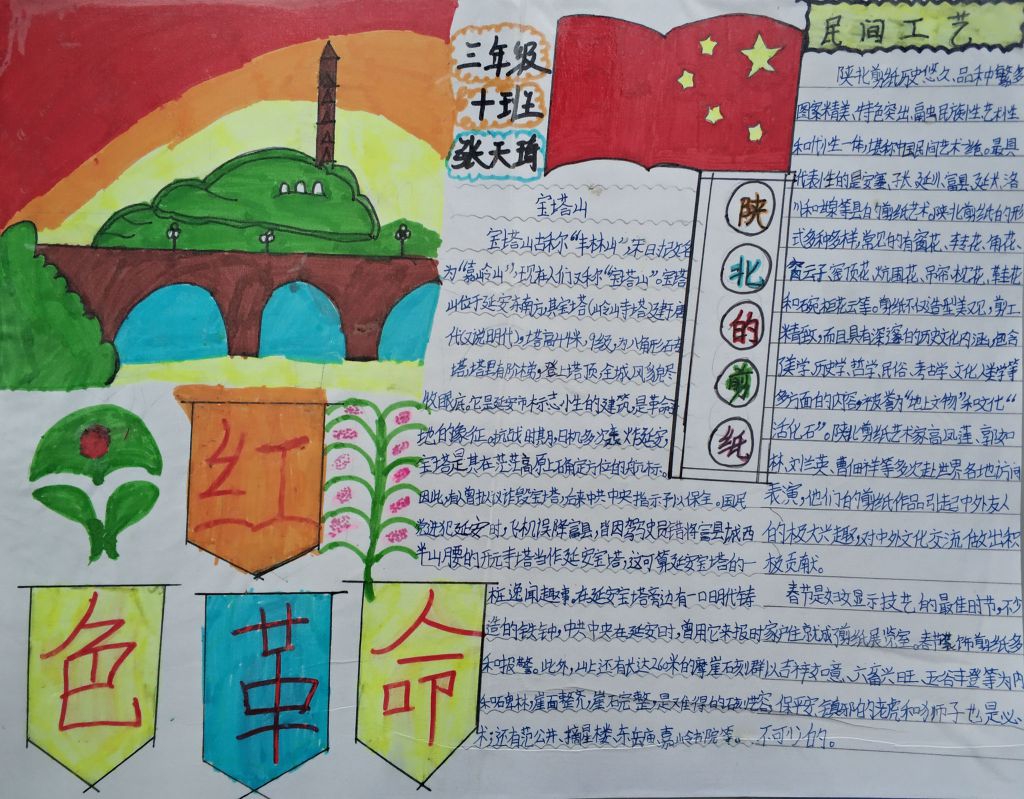 三年级
十班
张天琦
红
色
革
命
宝塔山
宝塔山古称“丰林山”,宋日力改名
为“嘉岭山”,现在人们又称“宝塔山”。宝塔
山位于延安东南方,其宝塔(岭山寺塔)建于唐
代(又说明代),塔高44米,9级,为八角形石专
塔,塔里有阶梯,登上塔顶,全城风貌尽
收眼底。它是延安市标志小生的建筑,是革命圣
地的象征。抗战时期,日机多次轰炸延安,
宝塔是其在茫茫高原上确定方位的航标。
因此,有人曾拟议诈毁宝塔,后来中共中央指示予以保全。国民
党进犯延安时,飞机误炸富县,皆因驾驶员错将富县城西
半山腰的开元寺塔当作延安宝塔,这可算延安宝塔的一
桩逸闻趣事。在延安宝塔旁边有一口明代铸
造的铁钟,中共中央在延安时,曾用它来报时
和报警。此外,山上还有长达260米的摩崖石刻群
和石卑林,崖面整齐,崖石完整,是难得的石刻艺
术;还有范公井、摘星楼、东岳庙、嘉岭书院等。
陕
北
的
剪
纸
民间工艺
陕北剪纸历史悠久、品种繁多
图案精美、特色突出、融民族性艺术性
和时代性一体,堪称中国民间艺术一绝。最具
代表性的是安塞、子长、延川、富县、延长、洛
川和等县的剪纸艺术。陕北剪纸的形
式多种多样,常见的有窗花、转花、角花、
窗云子、窑顶花、炕围花、吊帘、枕花、鞋花
和碗架云等。剪纸不仅造型美观,剪工
精致,而且具有深邃的历史文化内涵,包含
美学、历史学、哲学、民俗、考古学、文化人类学等
多方面的内容,被誉为“地上文物”和文化“
活化石”。陕北剪纸艺术家高凤莲、郭如
林、刘兰英、曹佃祥等多次赴世界各地访问
表演,他们的剪纸作品引起中外友人
的极大兴趣,对中外文化交流做出积
极贡献。
春节是妇女显示技艺的最佳时节,不少
家户生就成剪纸展览室。春节装饰剪纸多
以吉祥如意、六畜兴旺、五谷丰登等为内
容,保平安镇邪的老虎和狮子也是必
不可少的。